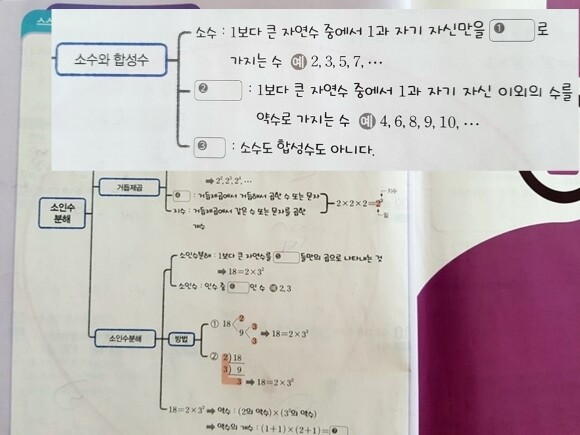 스스
소수와 합성수
소수 : 1보다 큰 자연수 중에서 1과 자기 자신만을 ① 로
가지는 수 예 2, 3, 5, 7, …
② : 1보다 큰 자연수 중에서 1과 자기 자신 이외의 수를
약수로 가지는 수 예 4, 6, 8, 9, 10, …
③ : 소수도 합성수도 아니다.
소인수
분해
거듭제곱
➡ 2², 2³, 2⁴, …
④ : 거듭제곱에서 거듭해서 곱한 수 또는 문자
지수 : 거듭제곱에서 같은 수 또는 문자를 곱한
개수
2×2×2=2³
지수
밑
소인수분해
소인수분해 : 1보다 큰 자연수를 들만의 곱으로 나타내는 것
➡ 18=2×3²
소인수 : 인수 중 인 수 예 2, 3
방법
① 18 2 9 3 3 ➡ 18=2×3²
② 2)18
3) 9
3 ➡ 18=2×3²
18=2×3² ➡ 약수 : (2의 약수)×(3²의 약수)
➡ 약수의 개수 : (1+1)×(2+1)= ⑦